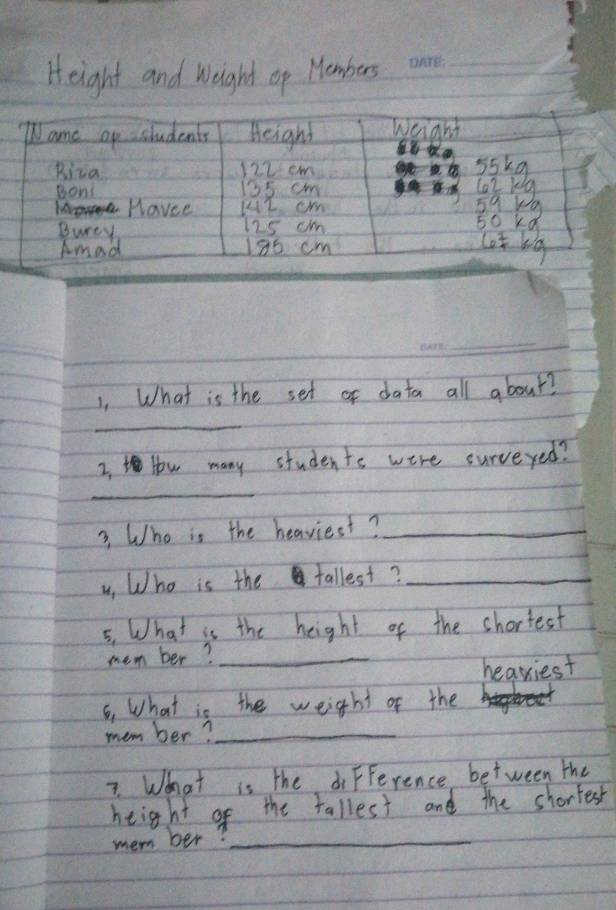 Height and Weight op Members DATE:
Name op students Height Weight
Riza 122 cm 55 kg
Boni 135 cm 62 kg
Mavee 142 cm 59 kg
Burcy 125 cm 50 kg
Amad 185 cm 67 kg
DATE:
1, What is the set of data all about?
2, How many students were surveyed?
3, Who is the heaviest?
4, Who is the tallest?
5, What is the height of the shortest
mem ber?
heaviest
6, What is the weight of the
mem ber?
7. What is the difference between the
height of the tallest and the shortest
mem ber?